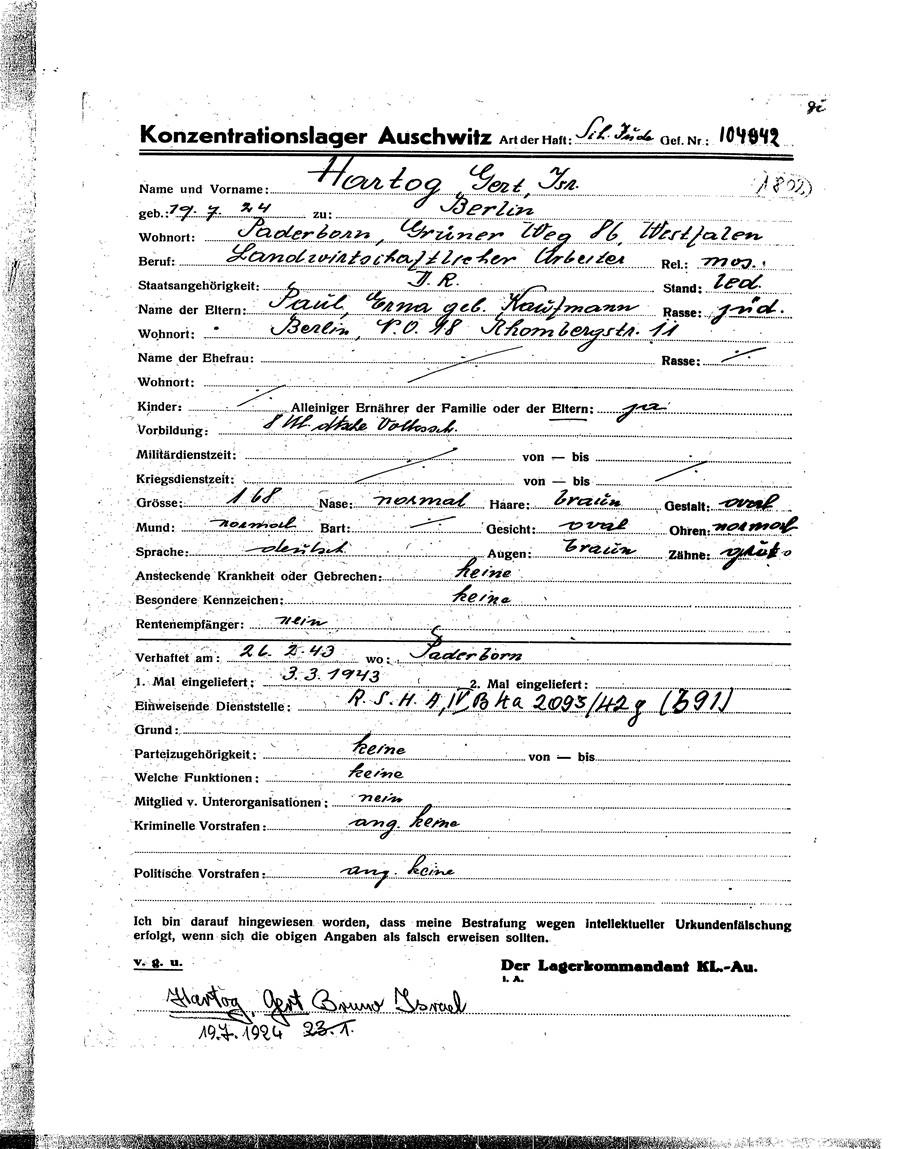 Konzentrationslager Auschwitz Art der Haft: Sch. Jude Gef. Nr.: 104942
Name und Vorname: Hartog Gert, Isr.
geb.: 19. 7. 24 zu: Berlin
Wohnort: Paderborn, Grüner Weg 86, Westfalen
Beruf: Landwirtschaftlicher Arbeiter Rel.: mos.
Staatsangehörigkeit: D. R. Stand: led.
Name der Eltern: Paul, Erna geb. Kaufmann Rasse: jüd.
Wohnort: Berlin, N.O. 18 Rhombergstr. 11
Name der Ehefrau: ./. Rasse: ./.
Wohnort:
Kinder: ./. Alleiniger Ernährer der Familie oder der Eltern: ja
Vorbildung: 8 Kl dtsche Volkssch.
Militärdienstzeit: ./. von — bis
Kriegsdienstzeit: von — bis ./.
Grösse: 168 Nase: normal Haare: braun Gestalt: oval
Mund: normal Bart: ./. Gesicht: oval Ohren: normal
Sprache: deutsch Augen: braun Zähne:
Ansteckende Krankheit oder Gebrechen: keine
Besondere Kennzeichen: keine
Rentenempfänger: nein
Verhaftet am: 26. 2. 43 wo: Paderborn
1. Mal eingeliefert: 3. 3. 1943 2. Mal eingeliefert:
Einweisende Dienststelle: R. S. H. A, IV B 4a 2093/42 g (391)
Grund:
Parteizugehörigkeit: keine von — bis
Welche Funktionen: keine
Mitglied v. Unterorganisationen: nein
Kriminelle Vorstrafen: ang. keine
Politische Vorstrafen: ang. keine
Ich bin darauf hingewiesen worden, dass meine Bestrafung wegen intellektueller Urkundenfälschung
erfolgt, wenn sich die obigen Angaben als falsch erweisen sollten.
v. g. u. Der Lagerkommandant KL.-Au.
i. A.
Hartog, Gert Bruno Israel
19.7.1924 23.1.